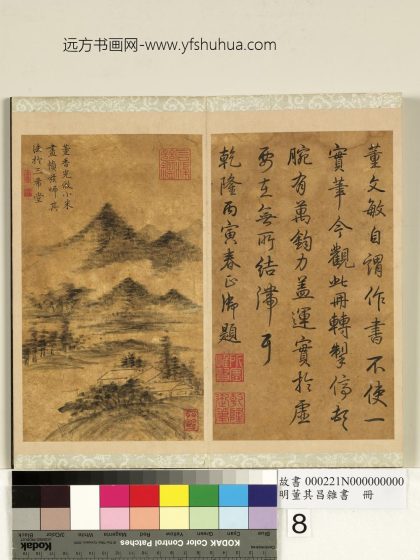 远方书画网-www.yfshuhua.com
董文敏自謂作書不使一
實筆今觀此冊轉掣停頓
腕有萬鈞力蓋運實於虛
要在無所結滯耳
乾隆丙寅春正御題
董香光倣小米
畫師其
法於三希堂
故書 000221N000000000
明董其昌雜書 冊
8
Blue Cyan Green Yellow Red Magenta White 3/Color Black
KODAK Color Control Patches